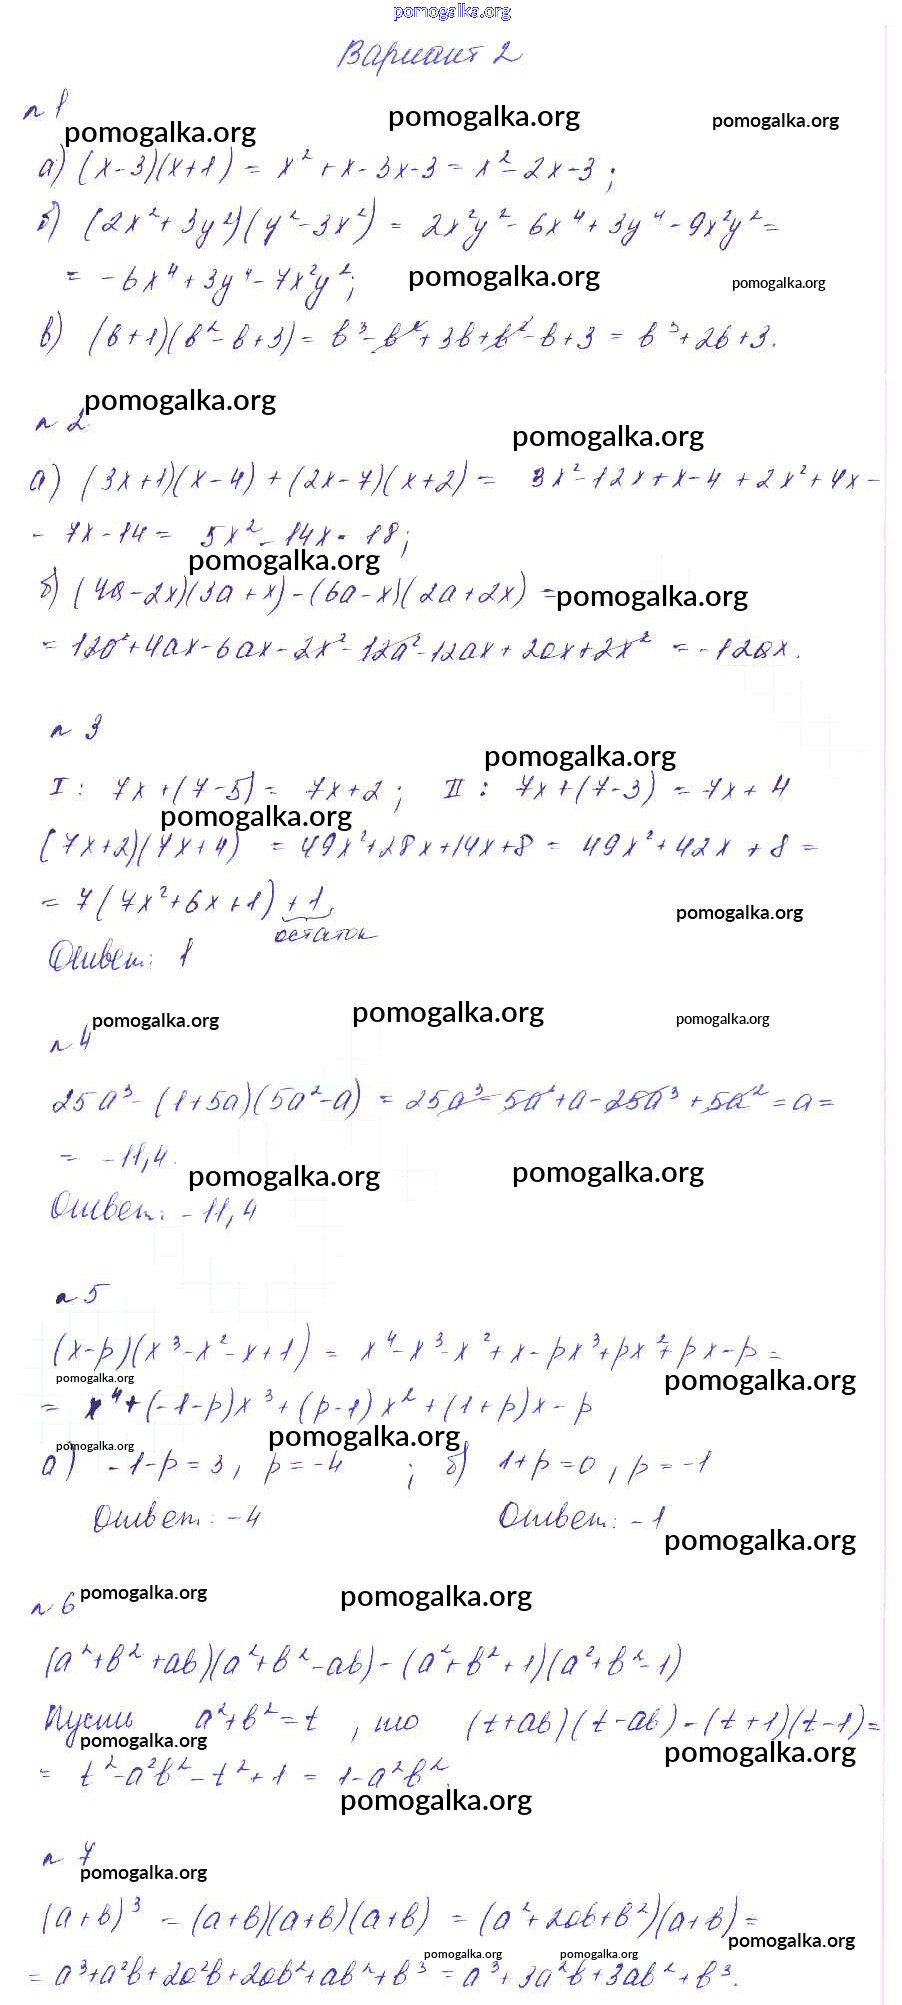 pomogalka.org
Вариант 2
n 1
pomogalka.org pomogalka.org pomogalka.org
а) (x-3)(x+1) = x² + x - 3x - 3 = x² - 2x - 3 ;
б) (2x² + 3y²)(y² - 3x²) = 2x²y² - 6x⁴ + 3y⁴ - 9x²y² =
= -6x⁴ + 3y⁴ - 7x²y²; pomogalka.org pomogalka.org
в) (b+1)(b² - b + 3) = b³ - b² + 3b + b² - b + 3 = b³ + 2b + 3.
pomogalka.org
n 2
pomogalka.org
а) (3x+1)(x-4) + (2x-7)(x+2) = 3x² - 12x + x - 4 + 2x² + 4x -
- 7x - 14 = 5x² - 14x - 18;
pomogalka.org
б) (4a - 2x)(3a + x) - (6a - x)(2a + 2x) =
pomogalka.org
= 12a² + 4ax - 6ax - 2x² - 12a² - 12ax + 2ax + 2x² = -12ax.
n 3
pomogalka.org
I : 7x + (7-5) = 7x + 2 ; II : 7x + (7-3) = 7x + 4
pomogalka.org
(7x+2)(7x+4) = 49x² + 28x + 14x + 8 = 49x² + 42x + 8 =
= 7(7x² + 6x + 1) + 1, pomogalka.org
остаток
Ответ: 1
pomogalka.org pomogalka.org pomogalka.org
n 4
25a³ - (1+5a)(5a² - a) = 25a³ - 5a² + a - 25a³ + 5a² = a =
= -11,4.
pomogalka.org pomogalka.org
Ответ: -11,4
n 5
(x-p)(x³ - x² - x + 1) = x⁴ - x³ - x² + x - px³ + px² + px - p =
pomogalka.org pomogalka.org
= x⁴ + (-1-p)x³ + (p-1)x² + (1+p)x - p
pomogalka.org pomogalka.org
а) -1-p = 3, p = -4 ; б) 1+p = 0, p = -1
Ответ: -4 Ответ: -1
pomogalka.org
n 6 pomogalka.org pomogalka.org
(a² + b² + ab)(a² + b² - ab) - (a² + b² + 1)(a² + b² - 1)
Пусть a² + b² = t , то (t + ab)(t - ab) - (t+1)(t-1) =
pomogalka.org pomogalka.org
= t² - a²b² - t² + 1 = 1 - a²b².
pomogalka.org
n 7
pomogalka.org
(a+b)³ = (a+b)(a+b)(a+b) = (a² + 2ab + b²)(a+b) =
pomogalka.org
pomogalka.org pomogalka.org
= a³ + a²b + 2a²b + 2ab² + ab² + b³ = a³ + 3a²b + 3ab² + b³.